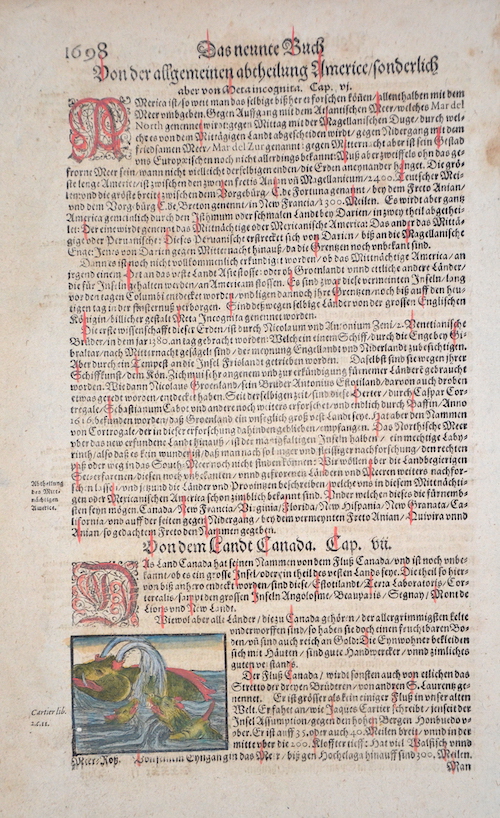 1698
Das neunte Buch
Von der allgemeinen abtheilung Americe/sonderlich
aber von Meta incognita. Cap. vj.
AMerica ist/so weit man das selbige bißher erforschen köñen/allenthalben mit dem
Meer vmbgeben. Gegen Auffgang mit dem Atlantischen Meer/welches Mar del
North genennet wirt: gegen Mittag mit der Magellanischen Enge/durch wel-
ches von dem Mittägigen Landt abgescheiden wirdt/gegen Nidergang mit dem
friedsamen Meer/Mar del Zur genannt: gegen Mitternacht aber ist sein Gestad
vns Europæischen noch nicht allerdings bekannt: Muß aber zweiffels ohn das ge-
frorne Meer sein/wann nicht vielleicht der selbigen enden/die Erden aneynander hanget. Die grö-
ste lenge Americe/ist zwischen den zweyen fretis Anian vñ Magellanicum/2400. Teutscher Mei-
len: vnd die gröste breite zwischen dem Vorgebürg/C. de Fortuna genant/bey dem Freto Anian/
vnd dem Vorgebürg C. de Berton genennt/in New Francia/1300. Meilen. Es wirdt aber gantz
America gemeinlich durch den Isthmum oder schmalen Landt bey Darien/in zwey theil abgethei-
let: Der eine wirdt genennt das Mittnächtige oder Mexicanische America: Das ander das Mittä-
gige oder Peruanische: Dieses Peruanische erstrecket sich von Darien/biß an die Magellanische
Enge: Jenes von Darien gegen Mitternacht hinauß/da die Grentzen noch vnbekant sind.
Dann es ist noch nicht vollkommenlich erkundiget worden/ob das Mittnächtige America/an
irgend einem Ort an das veste Landt Asie stosse: oder ob Groenlandt vnnd ettliche andere Länder/
die für Inseln gehalten werden/an Americam stossen. Es sind zwar diese vermeinten Inseln/lang
vor den tagen Columbi entdecket worden/vnd ligen dannoch ihre Grentzen/noch biß auff den heu-
tigen tag in der finsternuß verborgen. Sind deßwegen selbige Länder von der grossen Englischen
Königin/billicher gestalt Meta Incognita genennet worden.
Die erste wissenschafft dieser Erden/ist durch Nicolaum vnd Antonium Zeni/2. Venetianische
Brüder/in dem jar 1380. an tag gebracht worden: Welch in einem Schiff/durch die Enge bey Gi-
braltar/nach Mitternacht gesäglet sind/der meynung Engellandt vnd Niderlandt zu besichtigen.
Aber durch ein Tempest an die Insel Frislandt getrieben worden. Daselbst sind sie wegen jhrer
Schiffkunst/dem Kön. Zichmui sehr angenem/vnd zur erkündigung fürnemer Länder gebraucht
worden. Wie dann Nicolaus Groenland/sein Bruder Antonius Estotiland/darvon auch droben
etwas geredt worden/entdecket haben. Seit derselbigen zeit/sind diese Oerter/durch Caspar Cor-
tregale/Sebastianum Cabot vnd andere noch weiters erforschet/vnd endlich durch Baffin/Anno
1616. befunden worden/daß Groenland ein vnsäglich groß vest Landt seye. Hat aber den Nammen
von Cortrogale/der in dieser erforschung dahinden geblieben/empfangen. Das Northische Meer
vber das new erfundene Landt hinauß/ist der manigfaltigen Inseln halben/ein mechtige Laby-
rinth/also daß es kein wunder ist/daß man nach so langer vnd fleissiger nachforschung/den rechten
paß oder weg in das South-Meer noch nicht finden können: Wir wöllen aber die Landtgierigen
See erfarenen/diesen noch vnbekanten/vnd gefrorenen Länden vnd Meeren weiters nachfor-
schen lassen/vnd jetz und die Länder vnd Provinzen beschreiben/welche vns in diesem Mittnächti-
gen oder Mexicanischen America schon zimlich bekannt sind. Vnder welchen dieses die fürnemb-
sten seyn mögen. Canada/New Francia/Virginia/Florida/New Hispania/New Granata/Ca-
lifornia/vnd auff der seiten gegen Nidergang/bey dem vermeynten Freto Anian/Quivira vnnd
Anian/so gedachtem Freto den Nammen gegeben.
Abtheilung
des Mitt-
nächtigen
Americe.
Von dem Landt Canada. Cap. vij.
DAs Land Canada hat seinen Nammen von dem Fluß Canada/vnd ist noch vnbe-
kannt/ob es ein grosse Insel/oder ein theil des vesten Lands seye. Die theil so hier-
von biß anhero endeckt worden/sind diese/Estotilandt/Terra Laboratoris/Cor-
terealis/sampt den grossen Inseln Angolosme/Beauparis/Segnay/Mont de
Lions vnd New Landt.
Wiewol aber alle Länder/die zu Canada gehören/der allergrimmigsten kelte
vnderworffen sind/so haben sie doch einen fruchtbaren Bo-
den/vñ sind auch reich an Gold: Die Eynwohner bekleiden
sich mit Häuten/sind gute Handwercker/vnnd zimliches
guten verstands.
Der Fluß Canada/wirdt sonsten auch von etlichen das
Stretto der dreyen Brüderen/von andren S. Laurentz ge-
nennet. Er ist grösser als kein einiger Fluß in vnser alten
Welt. Er fahet an/wie Jaques Cartier schreibet/jenseit der
Insel Assumption/gegen den hohen Bergen Honbuedo v-
ber. Er ist auff 35. oder auch 40. Meilen breit/vnnd in der
mitte vber die 200. Klaffter tieff: Hat viel Walfisch vnnd
Cartier lib.
2.c.11.
Meer-Roß. Von seinem Eyngang in das Meer/biß gen Hochelaga hinauff sind 300. Meilen.
Man